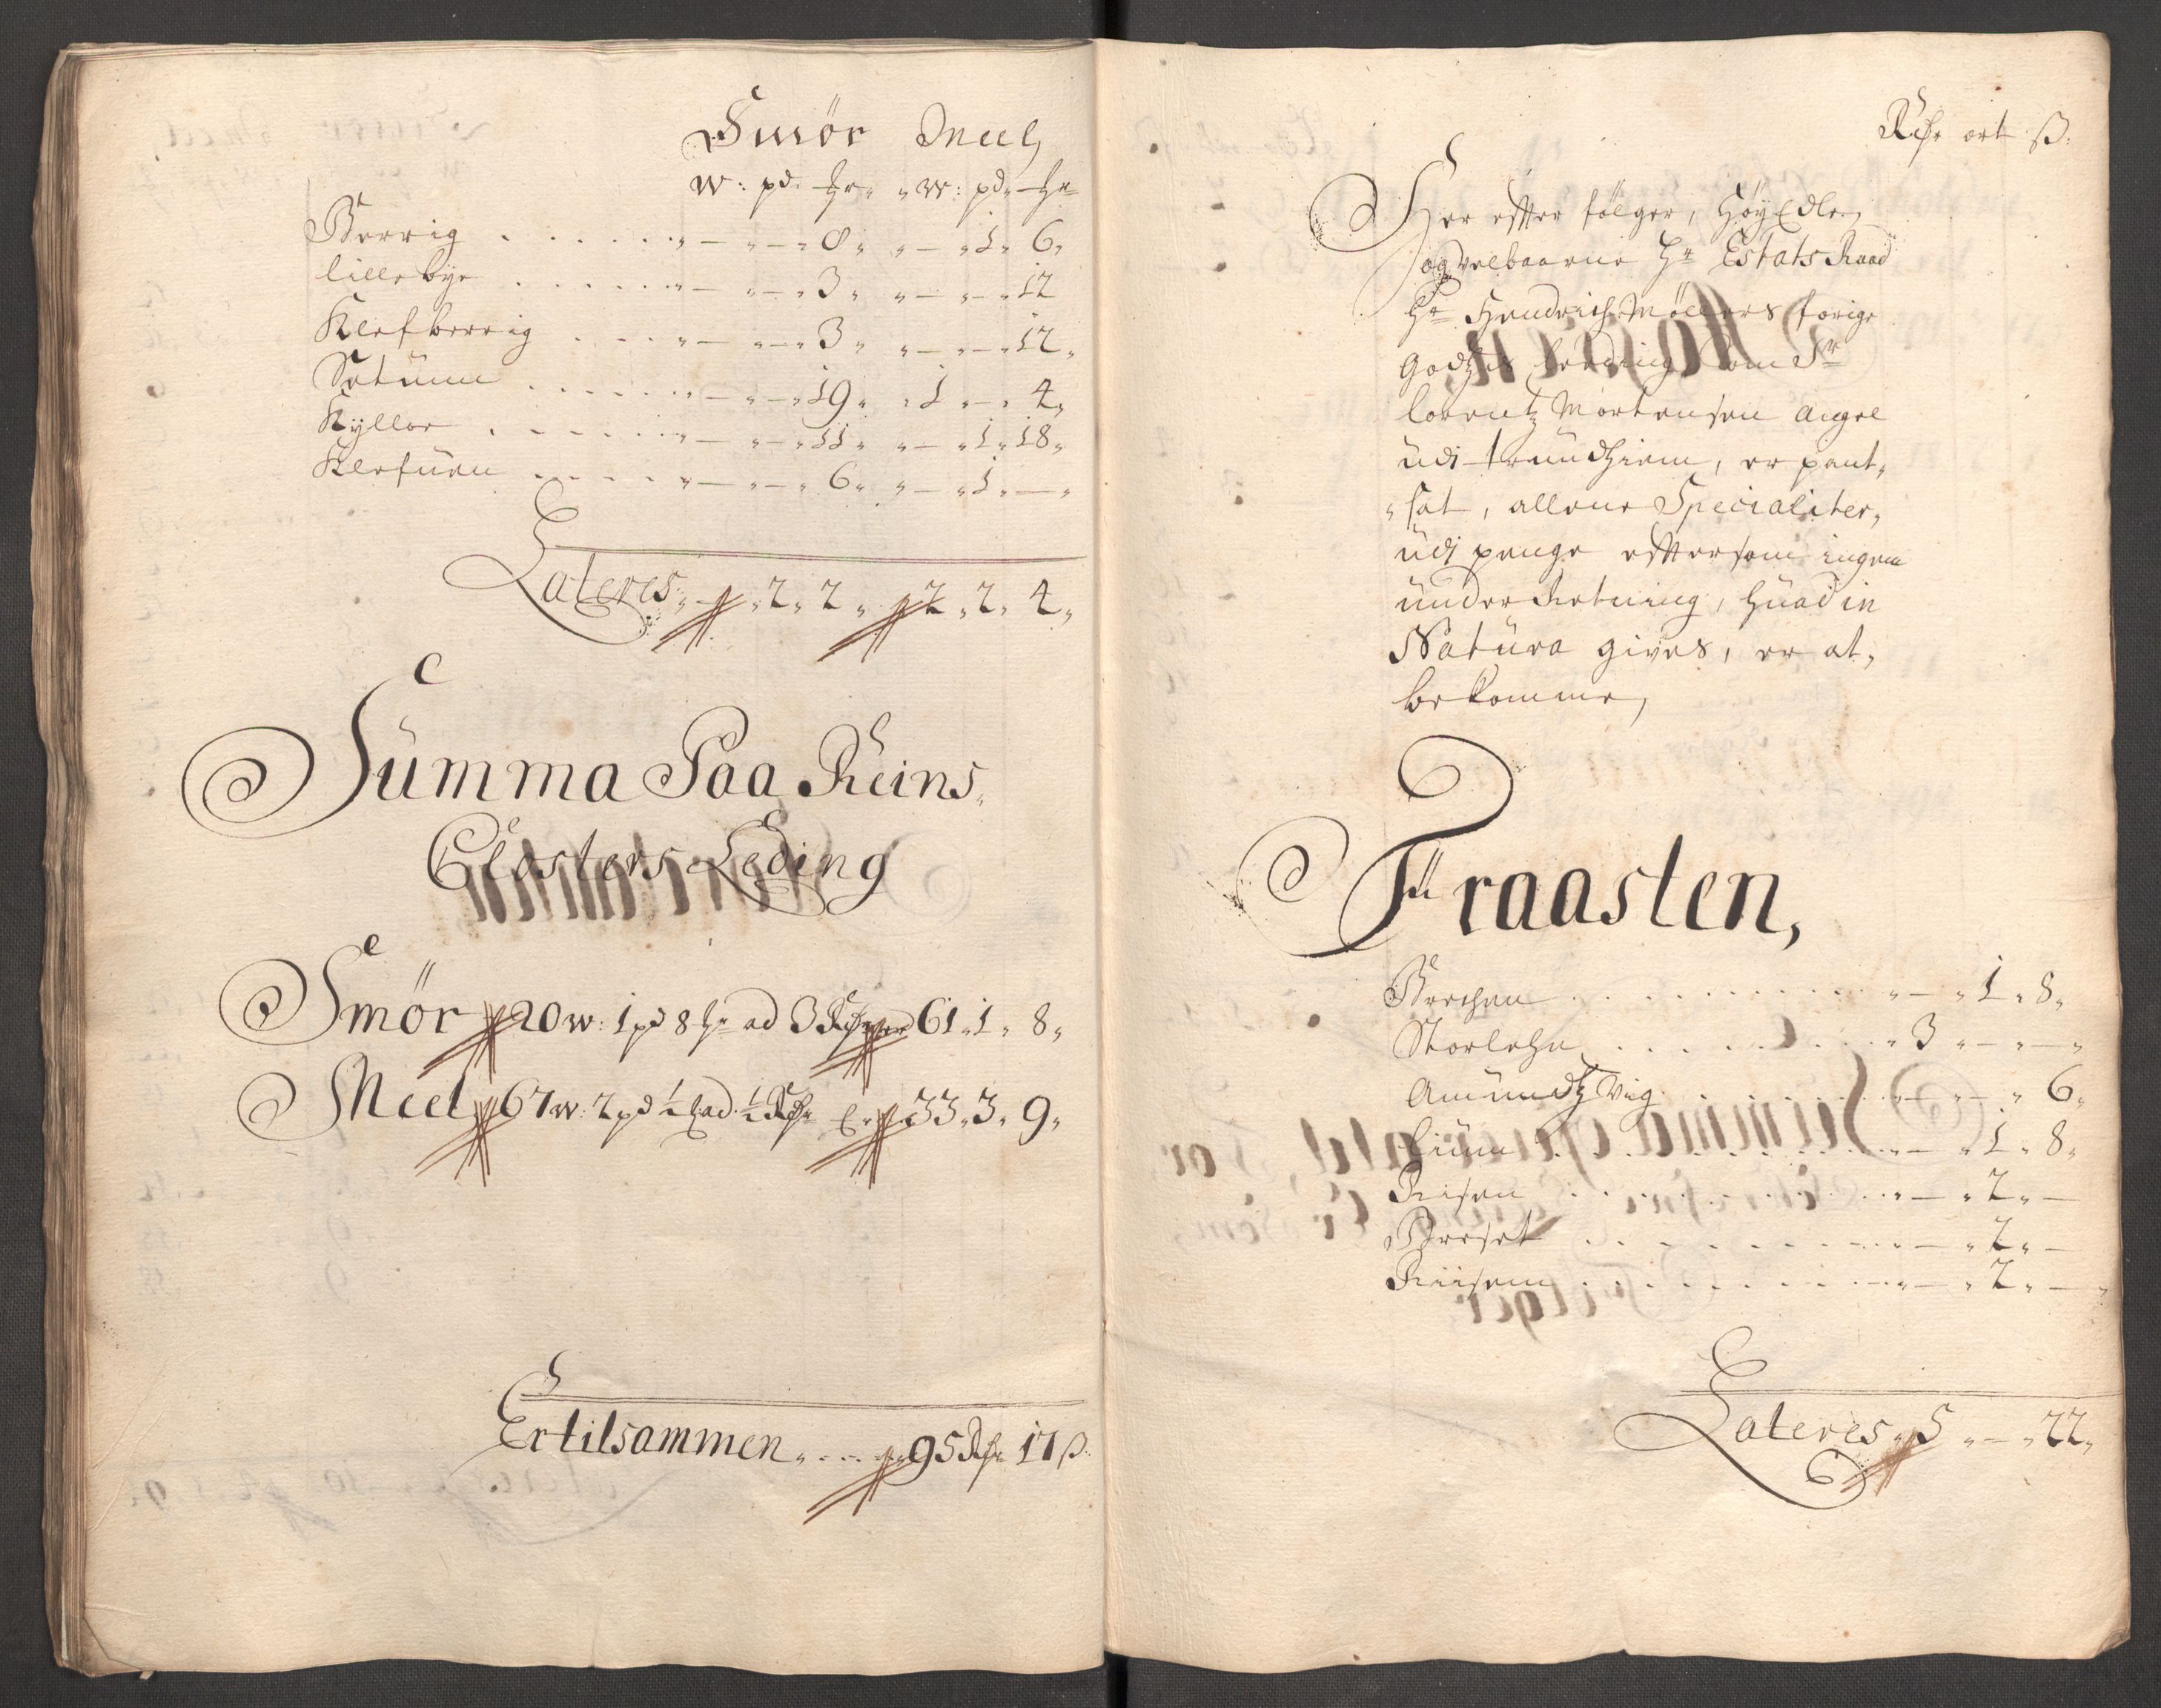 Smör Meel
w: pd. hr. w: pd. hr
Berrig . . . . . . „ — „ — „ 8 „ „ — „ 1 „ 6 „
lillebye . . . . . . „ — „ — „ 3 „ „ — „ — „ 12
Klefberrig . . . . „ — „ — „ 3 „ „ — „ — „ 12 „
Setünn . . . . . . „ — „ — „ 19 „ „ 1 „ — „ 4 „
Kyllor . . . . . . „ — „ — „ 11 „ „ — „ 1 „ 18 „
Klefüen . . . . „ — „ — „ 6 „ „ — „ 1 „ — „
Lateres „ — „ 2 „ 2 „ 2 „ 2 „ 4 „
Summa Paa Reins
Closters Leding
Smör 20 w: 1 pd 8 hr ad 3 Rdr er 61 „ 1 „ 8 „
Meel 67 w: 2 pd ½ ad ½ Rdr er 33 „ 3 „ 9 „
Er tilsammen . . . . 95 Rdr 17 ß
Rdr ort ß.
Her effter følger, HøyEdle
og velbaarne Hr Estats Raad
Hr Hendrich Møllers forige
Godtzis Leeding som Sr
lorentz Mortensen Angel
üdi Trundhiem, er pant-
„sat, allene Specialiter,
üdi penge effter som ingen
ünder Retning, hüad in
Natüra gives, er at,
bekomme,
Fraasten,
Berchen . . . . . . . . . „ — „ 1 „ 8 „
Storlehn . . . . . . . . „ 3 „ — „ — „
Amündtz Vig . . . . . . „ — „ — „ 6 „
Liünn . . . . . . . . . „ — „ 1 „ 8 „
Risen . . . . . . . . . „ — „ 2 „ —
Breset . . . . . . . . . „ — „ 2 „ —
Riisem . . . . . . . . . „ — „ 2 „ — „
Lateres „ 5 „ — „ 22 „